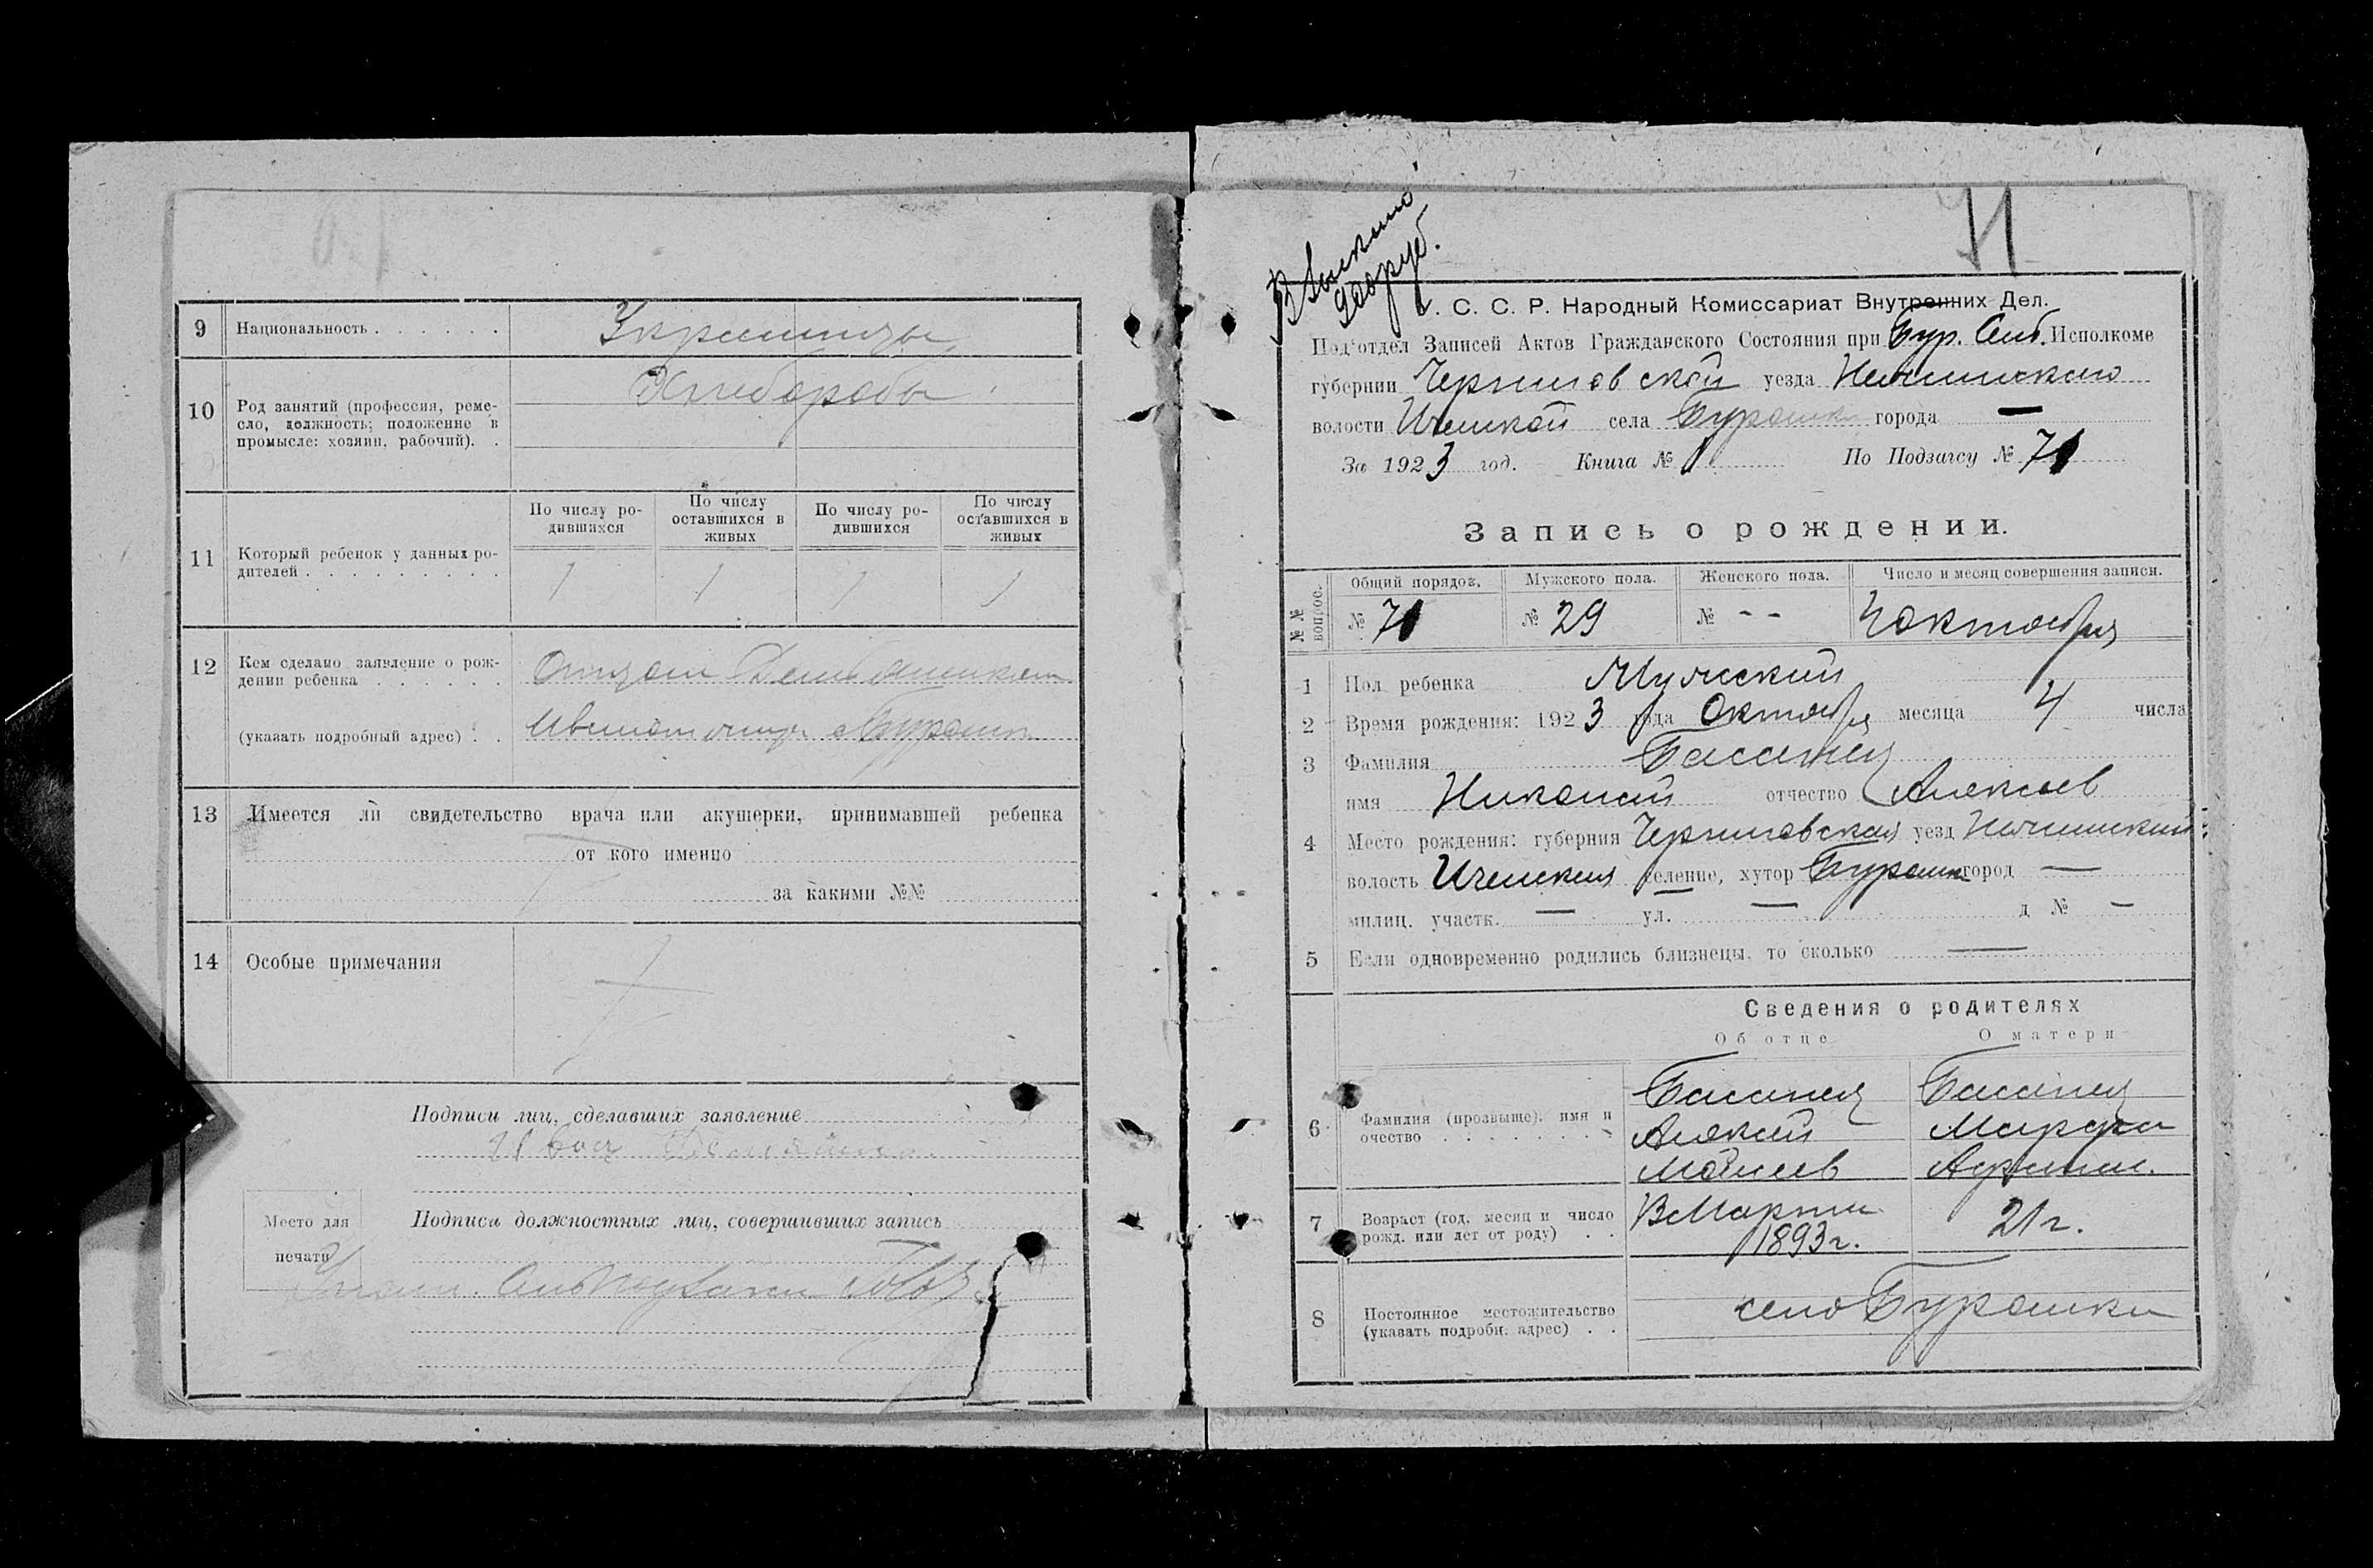 9 Национальность . . . . . . Украинцы
10 Род занятий (профессия, реме-
сло, должность; положение в
промысле: хозяин, рабочий). . Хлеборобы
11 Который ребенок у данных ро-
дителей . . . . . . . . .
По числу ро-
дившихся
По числу
оставшихся в
живых
По числу ро-
дившихся
По числу
оставшихся в
живых
1 1 1 1
12 Кем сделано заявление о рож-
дении ребенка . . . . . . Отцом
(указать подробный адрес) . .
13 Имеется ли свидетельство врача или акушерки, принимавшей ребенка
от кого именно
за какими №№
14 Особые примечания
Подписи лиц, сделавших заявление
Место для
печати
Подписи должностных лиц, совершивших запись
71
Взыскано
900 руб.
У. С. С. Р. Народный Комиссариат Внутренних Дел.
Под'отдел Записей Актов Гражданского Состояния при Бур. Исполкоме
губернии Черниговской уезда Нежинского
волости Иченской села Буромки города —
За 1923 год. Книга № 1 По Подзагсу № 71
Запись о рождении.
№№ вопрос.
Общий порядок. Мужского пола. Женского пола. Число и месяц совершения записи.
№ 71 № 29 № - - 4 октября
1 Пол ребенка Мужский
2 Время рождения: 1923 года Октября месяца 4 числа
3 Фамилия Басанец
имя Николай отчество Алексеев
4 Место рождения: губерния Черниговская уезд Нежинский
волость Иченская селение, хутор Буромка город —
милиц. участк. — ул. — д № —
5 Если одновременно родились близнецы, то сколько —
Сведения о родителях
Об отце О матери
6 Фамилия (прозвыще), имя и
очество . . . . . . . .
Басанец Басанец
Алексей Марфа
Моисеев
7 Возраст (год, месяц и число
рожд. или лет от роду) . .
В Марте
1893 г. 21 г.
8 Постоянное местожительство
(указать подробн. адрес) . . село Буромка